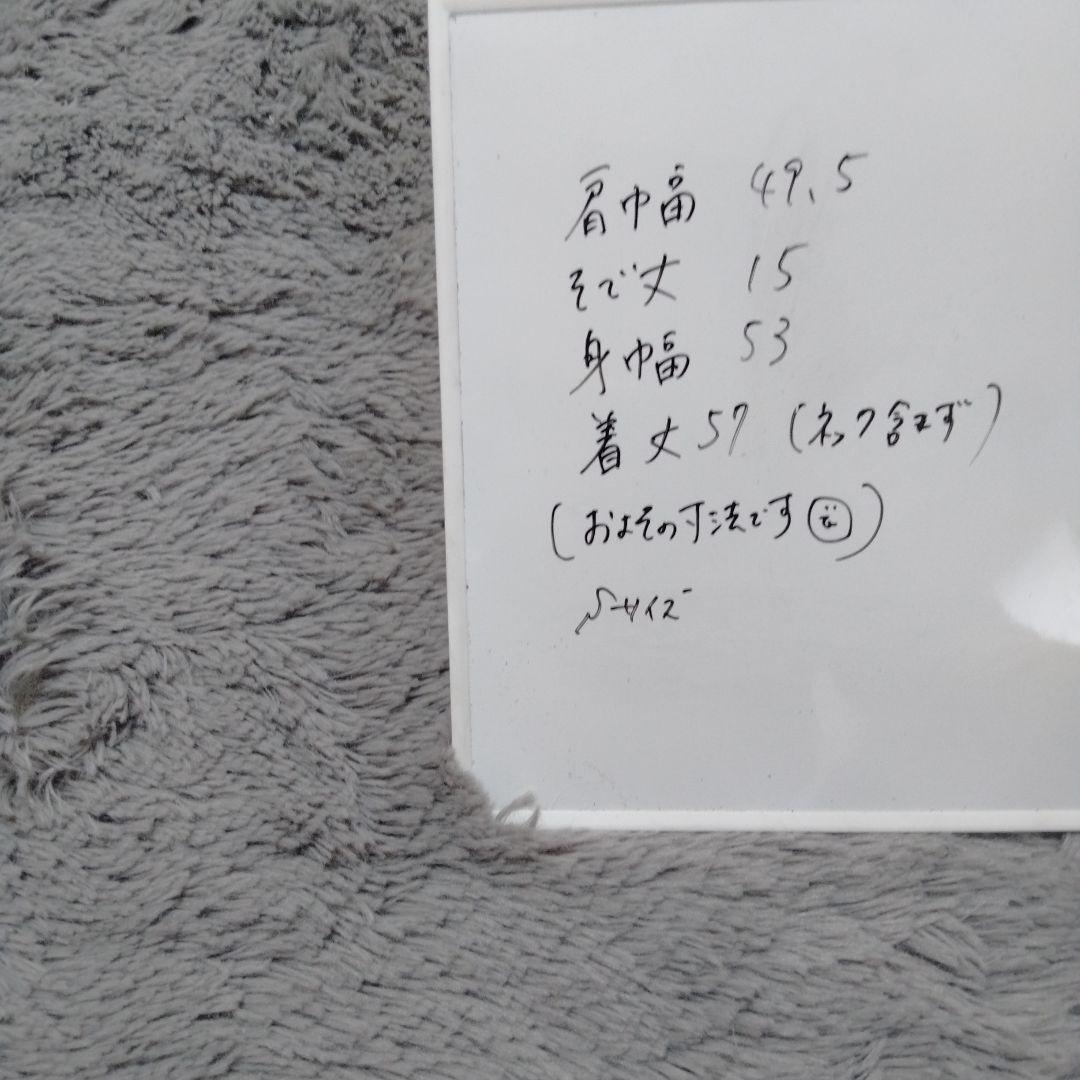 肩巾幅 49.5
そで丈 15
身巾幅 53
着丈 57 (ネック含まず)
(およその寸法です)
Sサイズ